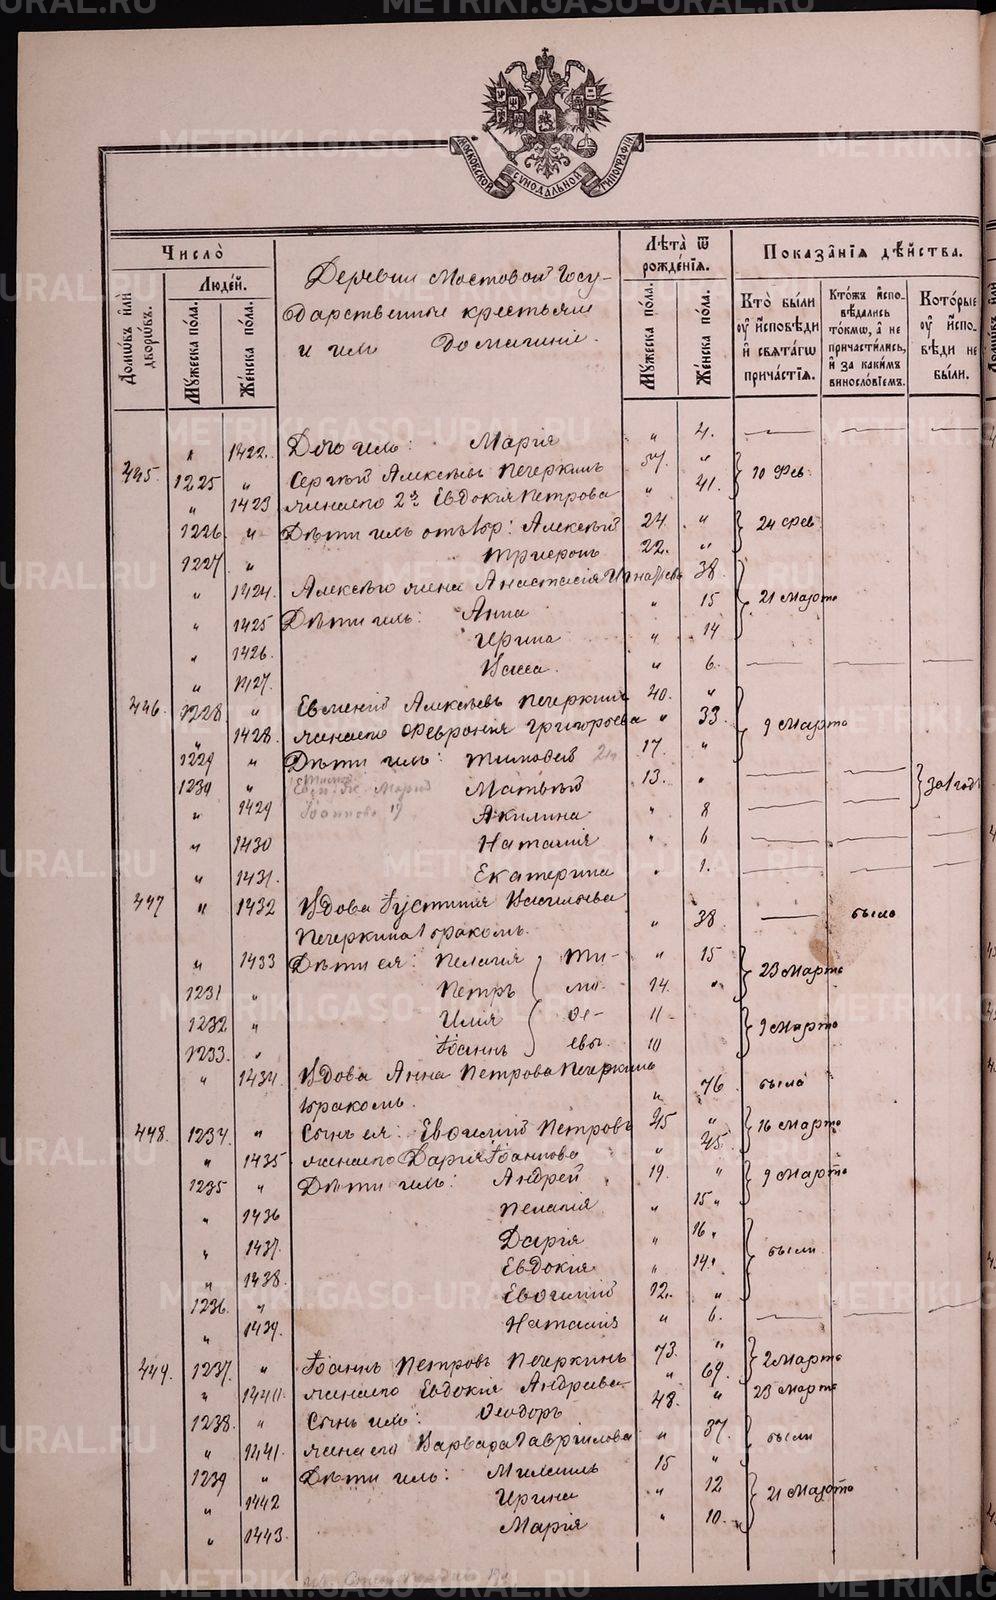 МОСКОВСКОЙ СѴНОДАЛЬНОЙ ТИПОГРАФІИ
Число̀
Домѡвъ и҆лѝ дворѡвъ.
Люде́й.
Мꙋжеска по́ла.
Же́нска по́ла.
Деревни Мостовой Госу-
дарственные крестьяне
и ихъ домашніе.
Лѣта̀ ѿ рожде́нїѧ.
Мꙋжеска по́ла.
Же́нска по́ла.
Показа̑нїѧ дѣ́йства.
Кто̀ бы́ли ᲂу҆ и҆сповѣди и҆ свѧта́гѡ прича́стїѧ.
Кто́жъ и҆спо-вѣдались то́кмѡ, а҆ не причасти́лись, и҆ за каки́мъ винослѡ́вїемъ.
Кото́рые ᲂу҆ и҆спо-вѣди не бы́ли.
" 1422. Дочь ихъ: Марія " 4.
445. 1225 " Сергѣй Алексѣевъ Печеркинъ 57. " 10 Фев.
" 1423 жена его 2я Евдокія Петрова " 41.
1226. " Дѣти ихъ отъ 1бр: Алексѣй 24. " 24 Фев
1227. " 22. "
" 1424. Алексѣя жена Анастасія 38
" 1425 Дѣти ихъ: Анна " 15 21 Марта
" 1426. Ирина " 14
" 1427. " 6.
446. 1228. " Евменій Алексѣевъ Печеркинъ 40. "
" 1428. жена его Феврония Григорьева " 33. 9 Марта
1229 " Дѣти ихъ: Тимофей 17. "
1230 " Матвѣй 13. " за 1 годъ
" 1429 Акилина " 8
" 1430 Наталия " 6
" 1431. Екатерина " 1.
447 " 1432 Вдова Іустинія Васильева
Печеркина 1 бракомъ. " 38 было
" 1433 Дѣти ея: Пелагия Ти- " 15 23 Марта
1231 " Петръ мо- 14. "
1232 " Илія ѳе- 11 9 Марта
1233. " Іоаннъ евы. 10
" 1434. Вдова Анна Петрова
1 бракомъ. " 76 было
448. 1234. " Сынъ ея: Евѳимій Петровъ 45 " 16 Марта
" 1435 жена его Дарія Іоаннова " 45.
1235 " Дѣти ихъ: Андрей 19. " 9 Марта
" 1436 Пелагія " 15
" 1437. Дарія " 16. были
" 1438. Евдокія " 14.
1236. " Евѳимий 12. "
" 1439. Наталия " 6.
449. 1237. " Іоаннъ Петровъ Печеркинъ 73. " 2 Марта
" 1440. жена его Евдокія Андреева " 69. 23 Марта
1238. " Сынъ ихъ: Ѳеодоръ 48. "
" 1441. жена его Варвара Гаврилова " 37. были
1239 " Дѣти ихъ: Михаилъ 15 "
" 1442 Ирина " 12 21 Марта
" 1443. Марія " 10.
METRIKI.GASO-URAL.RU